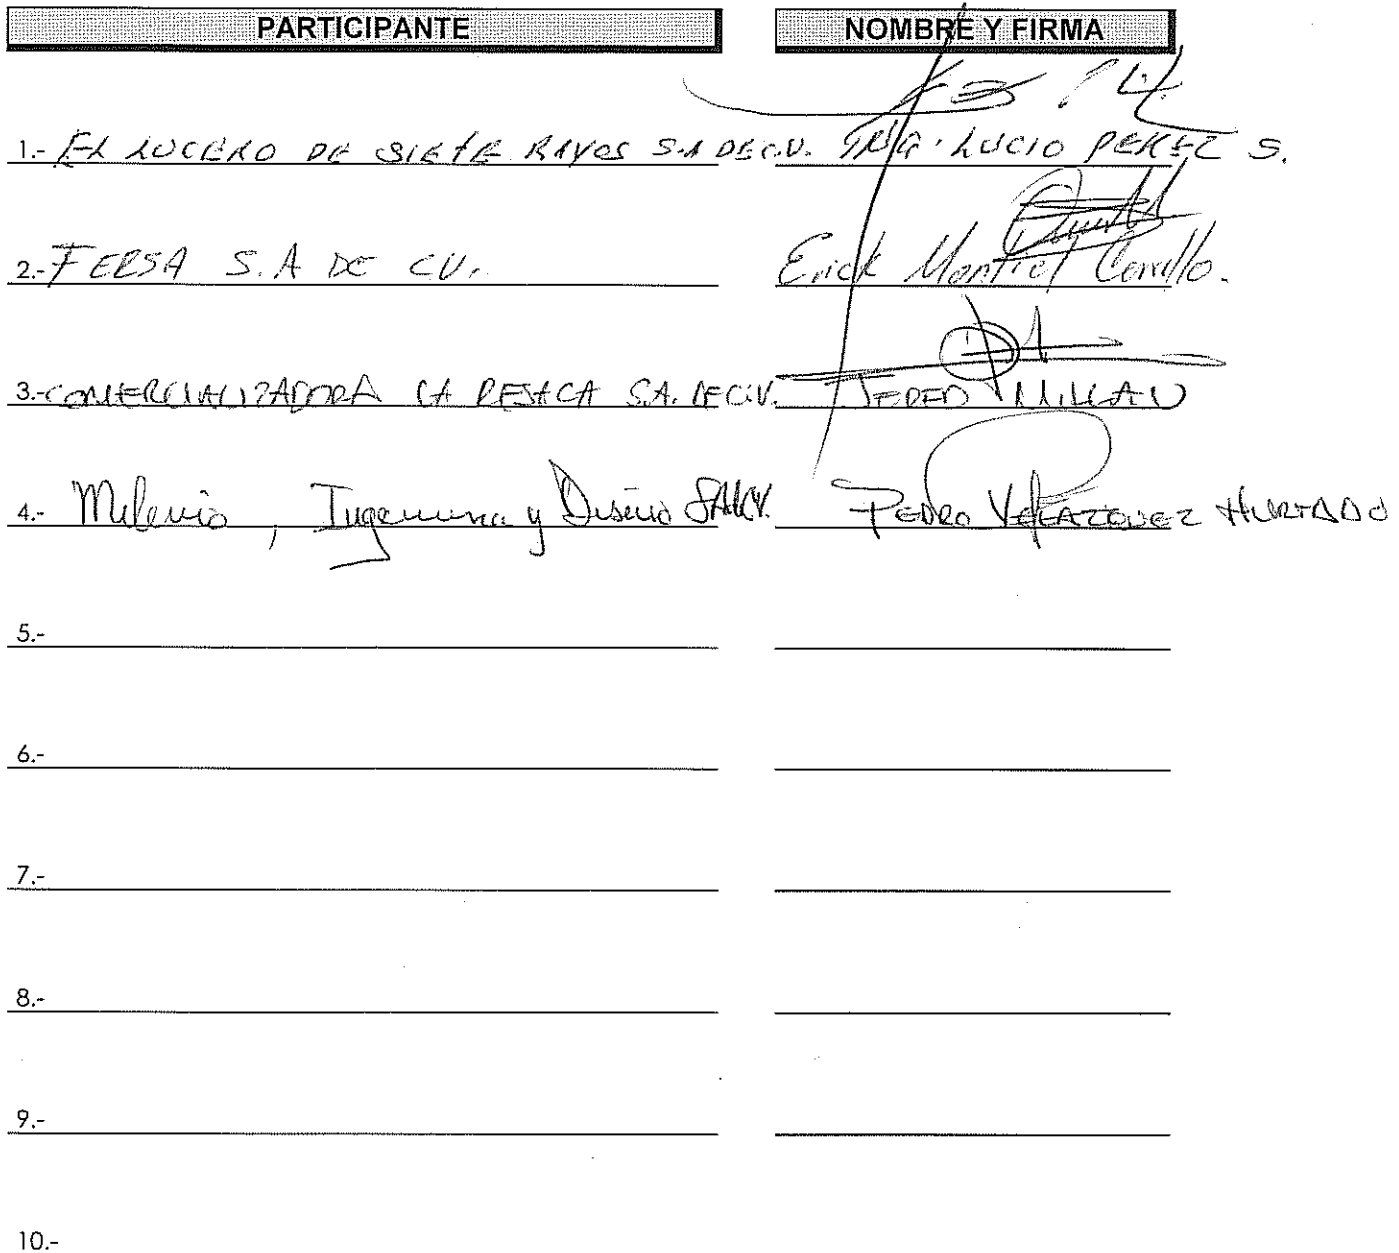 PARTICIPANTE NOMBRE Y FIRMA
1.- EL LUCERO DE SIETE RAYOS S.A DE C.V. ING. LUCIO PEREZ S.
2.- FERSA S.A DE CV. Erick Montiel Carrillo.
3.- COMERCIALIZADORA LA RESACA S.A. DE C.V. JERED MILLAN
4.- Milenio, Ingenieria y Diseño SA de CV. PEDRO VELAZQUEZ HURTADO
5.-
6.-
7.-
8.-
9.-
10.-